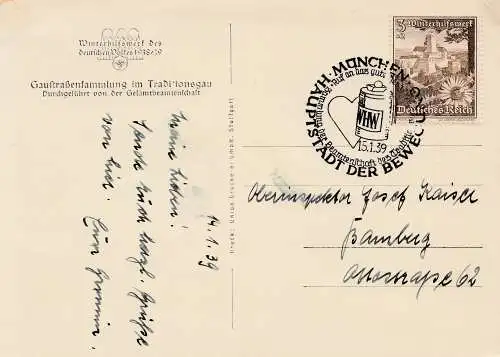 Winterhilfswerk des
deutschen Volkes 1938-39
Gaustraßensammlung im Traditionsgau
Durchgeführt von der Gesamtbeamtenschaft
14.1.39
Meine Lieben!
Sende Euch herzl. Grüße
von hier. Euer
3 Winterhilfswerk
Deutsches Reich
MÜNCHEN
HAUPTSTADT DER BEWEGUNG
der Beamtenschaft des Traditions
WHW
15.1.39
Oberinspektor Josef Kaiser
Bamberg
Ottostraße 62